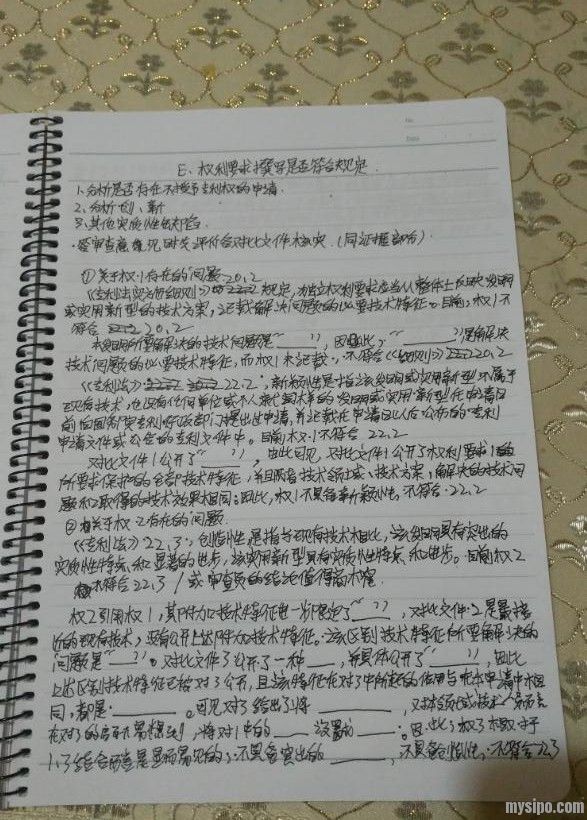 No
Date
E、权利要求撰写是否符合规定
1、分析是否存在不授予专利权的申请
2、分析创、新
3、其他实质性缺陷
(同证据部分)
①关于权1存在的问题 20.2
《专利法实施细则》 规定,独立权利要求应当从整体上反映发明
或实用新型的技术方案,记载解决技术问题的必要技术特征。目前,权1不
符合 20.2
本发明所要解决的技术问题是“ ”,因此,“ ”是解决
技术问题的必要技术特征,而权1未记载,不符合《细则》 20.2
《专利法》 22.2:新颖性是指该发明或实用新型不属于
现有技术,也没有任何单位或个人就同样的发明或实用新型在申请日
前向国务院专利行政部门提出过申请,并记载在申请日以后公布的专利
申请文件或公告的专利文件中。目前权1不符合22.2
对比文件1公开了“ ”,由此可见,对比文件1公开了权利要求1的
所要求保护的全部技术特征,并且两者技术领域、技术方案,解决的技术问
题和取得的技术效果相同;因此,权1不具备新颖性,不符合22.2
②关于权2存在的问题
《专利法》22.3:创造性是指与现有技术相比,该发明具有突出的
实质性特点和显著的进步,该实用新型具有实质性特点和进步。目前权2
不符合22.3 / 或审查员的结论值得商榷
权2引用权1,其附加技术特征进一步限定了“ ”,对比文件2是最接
近的现有技术,还有公开上述附加技术特征。该区别技术特征所要解决的
问题是“ ”。对比文件3公开了一种 ,并具体公开了“ ”,因此
上述区别技术特征已被对3公开,且该特征在对3中所起的作用与在本申请中相
同,都是: 。因此对3给出了将 ,对本领域技术人员而言
在对3的启示下容易想到,将对1中的 设置为 。因此,权3相对于
1、3结合而言是显而易见的;不具备突出的 ,不具备创造性,不符合22.3
mysipo.com